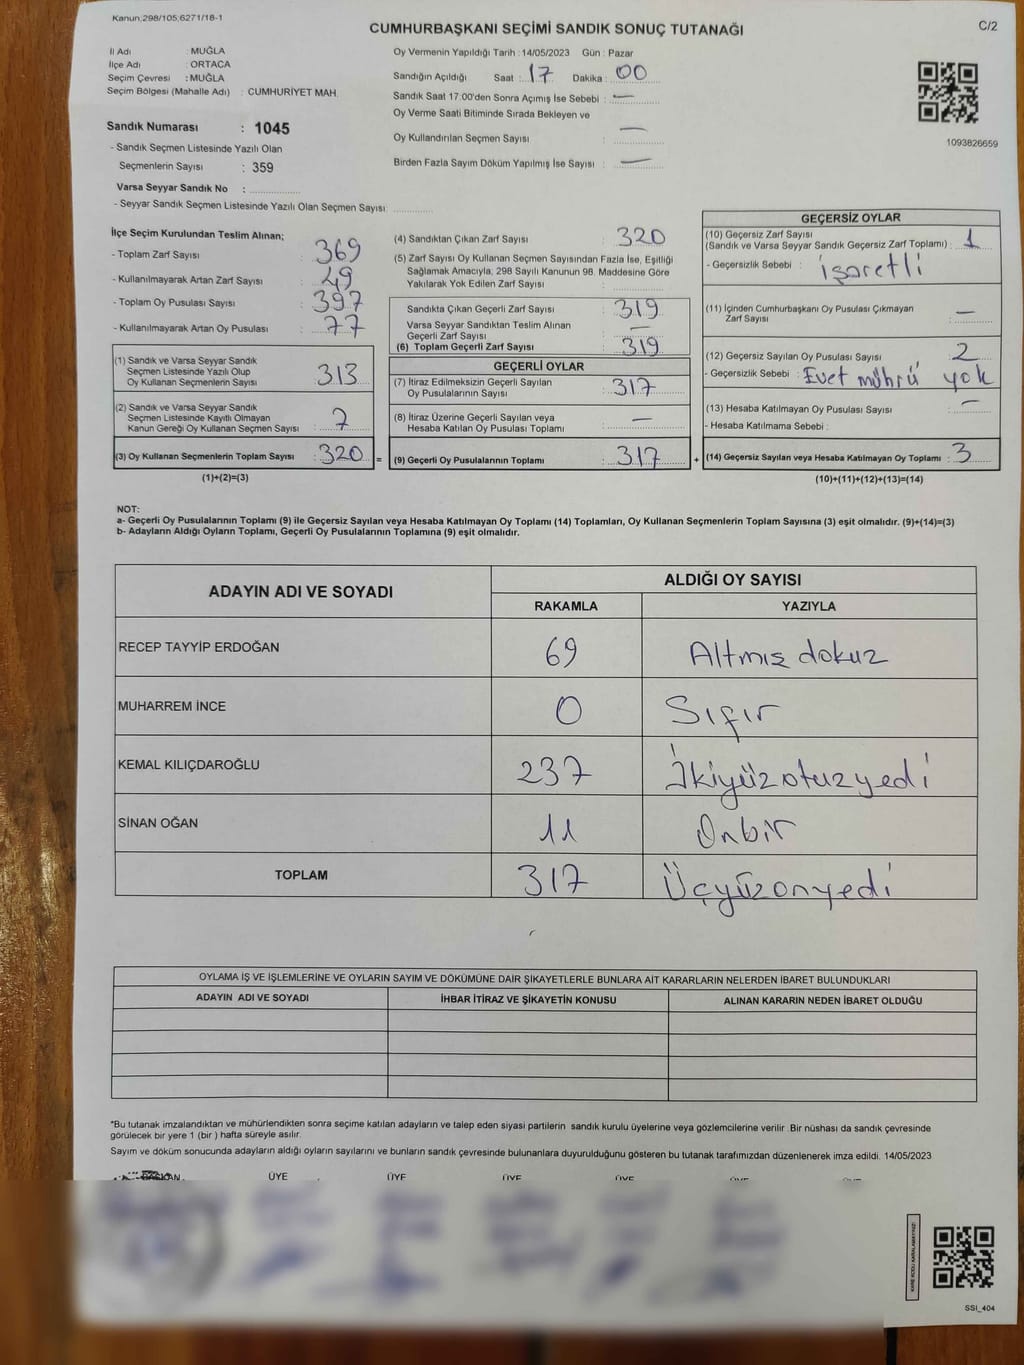 Kanun;298/105;6271/18-1
CUMHURBAŞKANI SEÇİMİ SANDIK SONUÇ TUTANAĞI
C/2
İl Adı : MUĞLA
İlçe Adı : ORTACA
Seçim Çevresi : MUĞLA
Seçim Bölgesi (Mahalle Adı) : CUMHURİYET MAH.
Sandık Numarası : 1045
- Sandık Seçmen Listesinde Yazılı Olan
Seçmenlerin Sayısı : 359
Varsa Seyyar Sandık No :
- Seyyar Sandık Seçmen Listesinde Yazılı Olan Seçmen Sayısı:
Oy Vermenin Yapıldığı Tarih :14/05/2023 Gün : Pazar
Sandığın Açıldığı Saat : 17 Dakika : 00
Sandık Saat 17:00'den Sonra Açımış İse Sebebi : —
Oy Verme Saati Bitiminde Sırada Bekleyen ve
Oy Kullandırılan Seçmen Sayısı : —
Birden Fazla Sayım Döküm Yapılmış İse Sayısı : —
1093826659
İlçe Seçim Kurulundan Teslim Alınan;
- Toplam Zarf Sayısı : 369
- Kullanılmayarak Artan Zarf Sayısı : 49
- Toplam Oy Pusulası Sayısı : 397
- Kullanılmayarak Artan Oy Pusulası : 77
(1) Sandık ve Varsa Seyyar Sandık
Seçmen Listesinde Yazılı Olup
Oy Kullanan Seçmenlerin Sayısı : 313
(2) Sandık ve Varsa Seyyar Sandık
Seçmen Listesinde Kayıtlı Olmayan
Kanun Gereği Oy Kullanan Seçmen Sayısı : 7
(3) Oy Kullanan Seçmenlerin Toplam Sayısı : 320 =
(1)+(2)=(3)
(4) Sandıktan Çıkan Zarf Sayısı : 320
(5) Zarf Sayısı Oy Kullanan Seçmen Sayısından Fazla İse, Eşitliği
Sağlamak Amacıyla, 298 Sayılı Kanunun 98. Maddesine Göre
Yakılarak Yok Edilen Zarf Sayısı :
Sandıkta Çıkan Geçerli Zarf Sayısı : 319
Varsa Seyyar Sandıktan Teslim Alınan
Geçerli Zarf Sayısı : —
(6) Toplam Geçerli Zarf Sayısı : 319
GEÇERLİ OYLAR
(7) İtiraz Edilmeksizin Geçerli Sayılan
Oy Pusulalarının Sayısı : 317
(8) İtiraz Üzerine Geçerli Sayılan veya
Hesaba Katılan Oy Pusulası Toplamı : —
(9) Geçerli Oy Pusulalarının Toplamı : 317 +
GEÇERSİZ OYLAR
(10) Geçersiz Zarf Sayısı
(Sandık ve Varsa Seyyar Sandık Geçersiz Zarf Toplamı) : 1
- Geçersizlik Sebebi : işaretli
(11) İçinden Cumhurbaşkanı Oy Pusulası Çıkmayan
Zarf Sayısı : —
(12) Geçersiz Sayılan Oy Pusulası Sayısı : 2
- Geçersizlik Sebebi : Evet mührü yok
(13) Hesaba Katılmayan Oy Pusulası Sayısı : —
- Hesaba Katılmama Sebebi :
(14) Geçersiz Sayılan veya Hesaba Katılmayan Oy Toplamı : 3
(10)+(11)+(12)+(13)=(14)
NOT:
a- Geçerli Oy Pusulalarının Toplamı (9) ile Geçersiz Sayılan veya Hesaba Katılmayan Oy Toplamı (14) Toplamları, Oy Kullanan Seçmenlerin Toplam Sayısına (3) eşit olmalıdır. (9)+(14)=(3)
b- Adayların Aldığı Oyların Toplamı, Geçerli Oy Pusulalarının Toplamına (9) eşit olmalıdır.
ADAYIN ADI VE SOYADI
ALDIĞI OY SAYISI
RAKAMLA YAZIYLA
RECEP TAYYİP ERDOĞAN 69 Altmış dokuz
MUHARREM İNCE 0 Sıfır
KEMAL KILIÇDAROĞLU 237 İkiyüzotuzyedi
SİNAN OĞAN 11 Onbir
TOPLAM 317 Üçyüzonyedi
OYLAMA İŞ VE İŞLEMLERİNE VE OYLARIN SAYIM VE DÖKÜMÜNE DAİR ŞİKAYETLERLE BUNLARA AİT KARARLARIN NELERDEN İBARET BULUNDUKLARI
ADAYIN ADI VE SOYADI İHBAR İTİRAZ VE ŞİKAYETİN KONUSU ALINAN KARARIN NEDEN İBARET OLDUĞU
*Bu tutanak imzalandıktan ve mühürlendikten sonra seçime katılan adayların ve talep eden siyasi partilerin sandık kurulu üyelerine veya gözlemcilerine verilir .Bir nüshası da sandık çevresinde
görülecek bir yere 1 (bir ) hafta süreyle asılır.
Sayım ve döküm sonucunda adayların aldığı oyların sayılarını ve bunların sandık çevresinde bulunanlara duyurulduğunu gösteren bu tutanak tarafımızdan düzenlenerek imza edildi. 14/05/2023
BAŞKAN ÜYE ÜYE ÜYE ÜYE ÜYE ÜYE
SSI_404